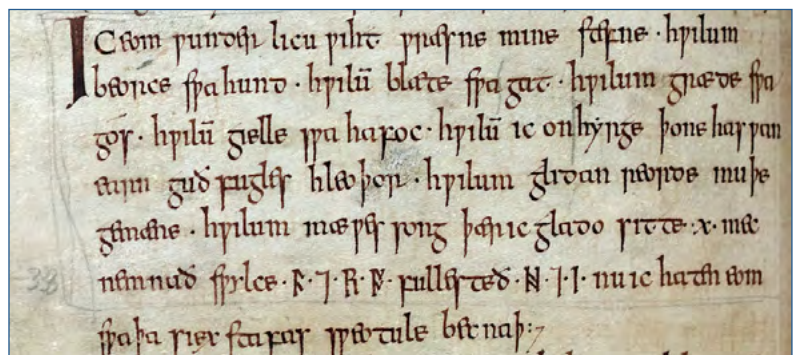 IC eom ƿunderlicu ƿiht ƿræsne mine stefne · hƿilum
beorce sƿa hund · hƿilū blæte sƿa gat · hƿilum græde sƿa
gos · hƿilū gielle sƿa hafoc · hƿilū ic onhyrge þone hasƿan
earn guð fugles hleoþor · hƿilum glidan reorde muþe
gemæne · hƿilum mæƿes song þær ic glado sitte · ᚷ · mec
nemnað sƿylce · ᚫ · ⁊ · ᚱ · ᚩ · fullesteð · ᚻ · ⁊ · ᛁ · nu ic haten eom
sƿa þa siex stafas sƿeotule becnaþ :⁊
38